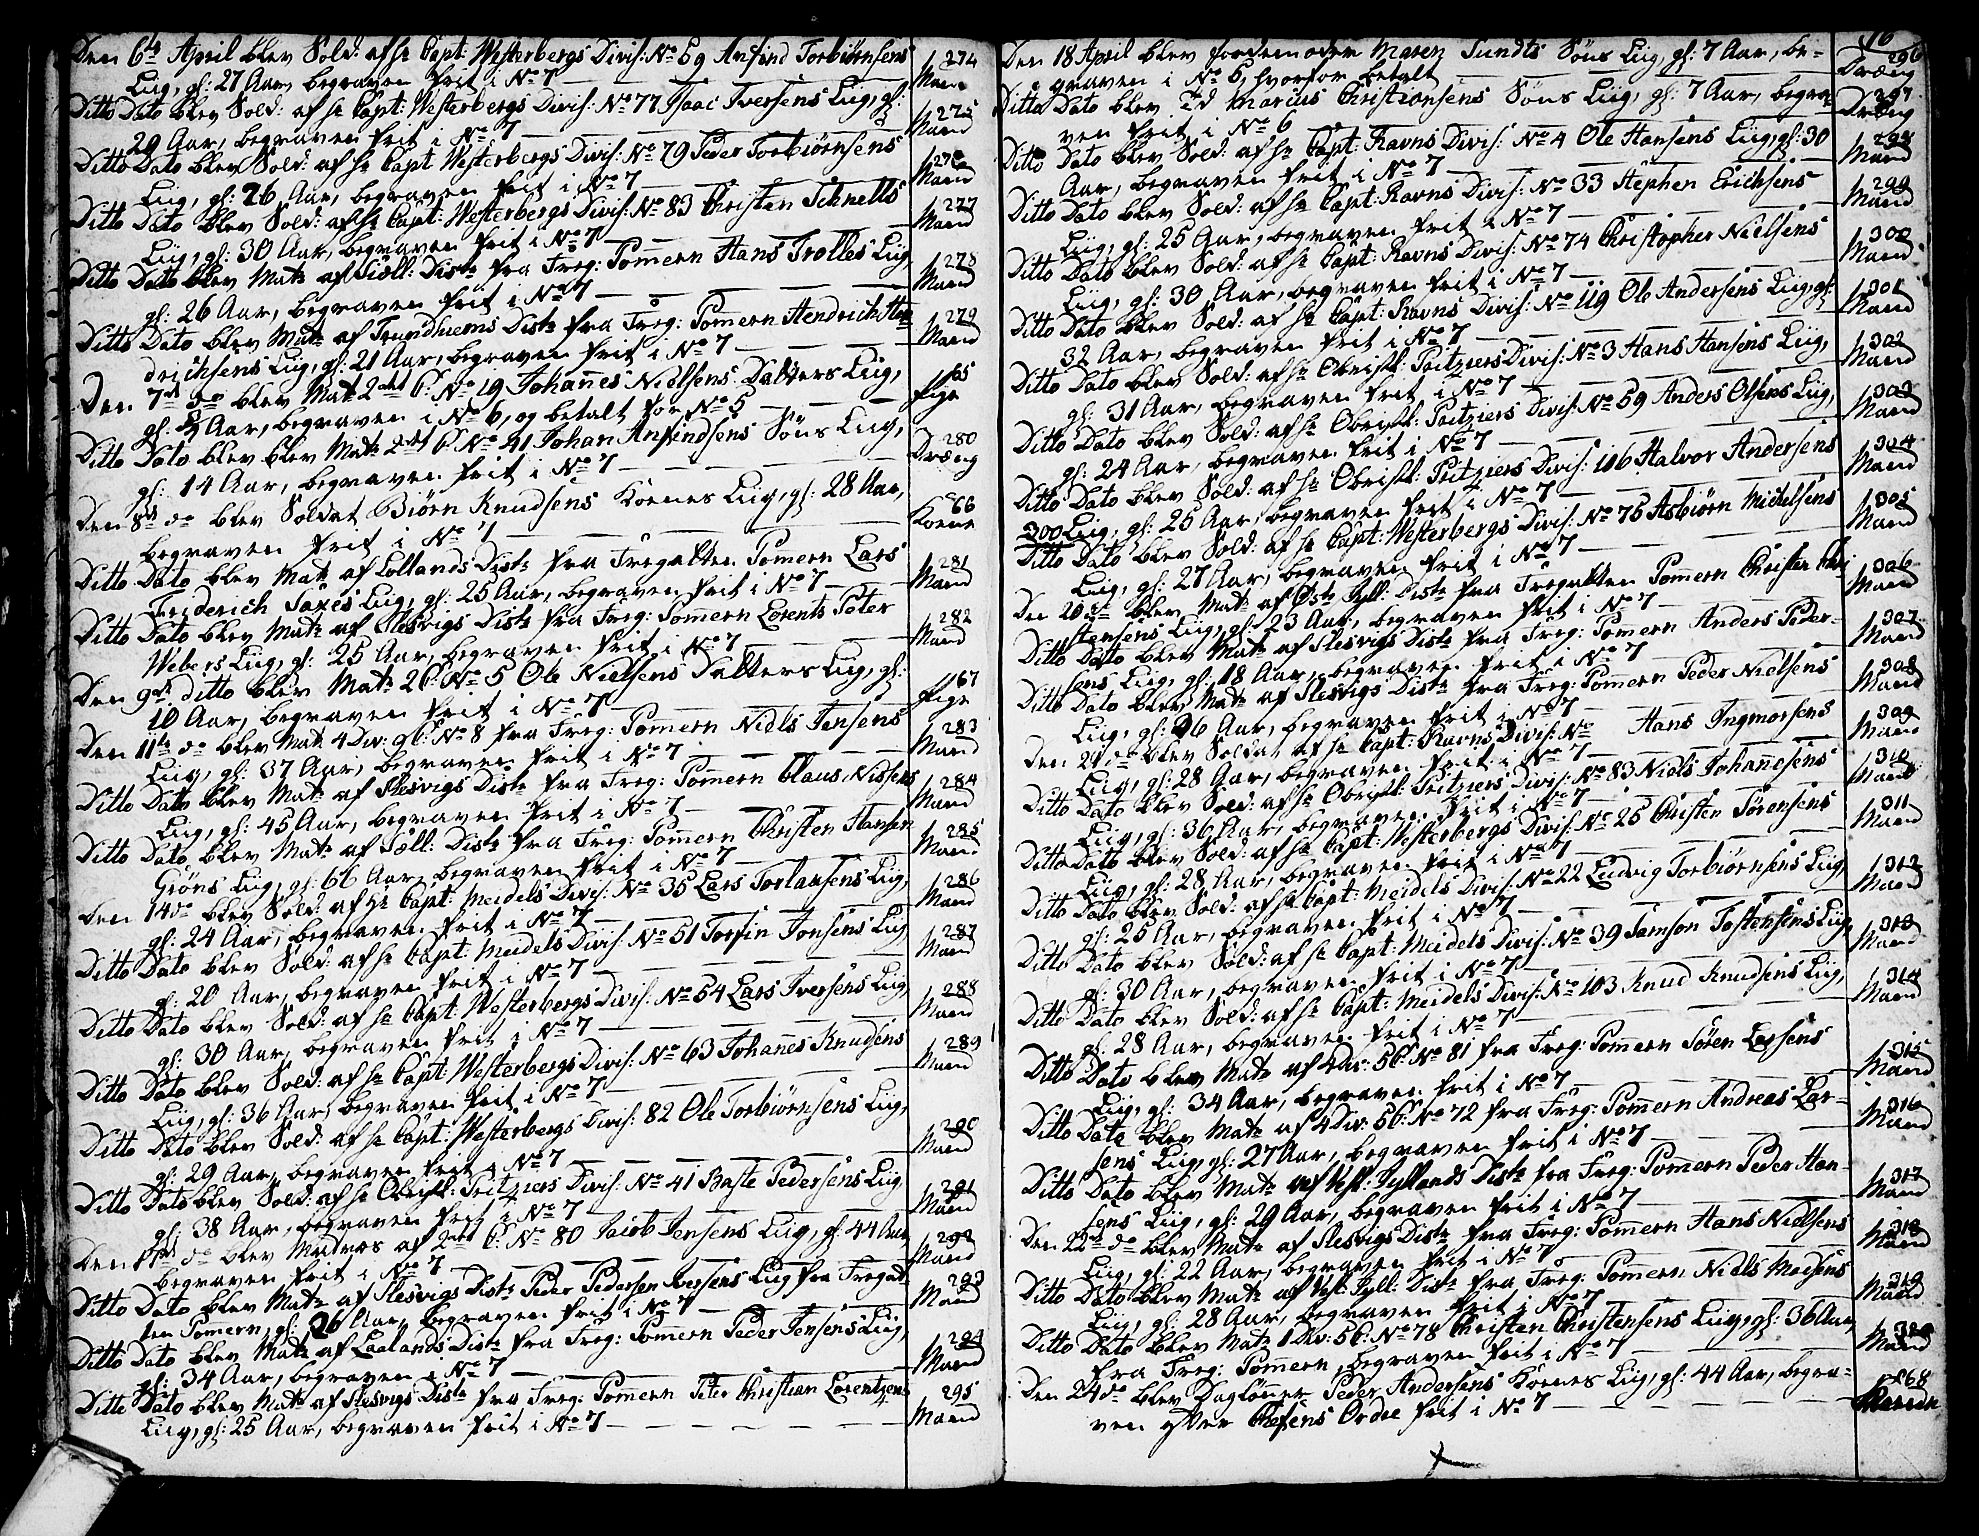 Den 6te April blev Sold: af hr Capt: Westerbergs Divis: No 59 Anfind Torbiørnsens 274
Liig, gl: 27 Aar, begraven frit i No 7 Mand
Ditto Dato blev Sold: af hr Capt: Westerbergs Divis: No 77 Isaac Iversens Liig, gl: 275
29 Aar, begraven frit i No 7 Mand
Ditto Dato blev Sold: af hr Capt Westerbergs Divis: No 79 Peder Torbiørnsens 276
Liig, gl: 26 Aar, begraven frit i No 7 Mand
Ditto Dato blev Sold: af hr Capt: Westerbergs Divis: No 83 Christen Schnells 277
Liig, gl: 30 Aar, begraven frit i No 7 Mand
Ditto Dato blev Matr af Siæll: Distr fra Freg: Pomern Hans Trolles Liig 278
gl: 26 Aar, begraven frit i No 7 Mand
Ditto Dato blev Matr af Trundhiems Distr fra Freg: Pomern Hendrich Hen- 279
drichsens Liig, gl: 21 Aar, begraven frit i No 7 Mand
Den 7de do blev Matr 2det C: No 19 Johannes Nielsens Datters Liig, 65
gl: Aar, begraven i No 6, og betalt for No 5 Pige
Ditto Dato blev blev Matr 2det C: No 41 Johan Anfindsens Søns Liig, 280
gl: 14 Aar, begraven frit i No 7 Dræng
Den 8de do blev Soldat Biørn Knudsens Koenes Liig, gl: 28 Aar, 66
begraven frit i No 7 Koene
Ditto Dato blev Matr af Lollands Distr fra Fregatten Pomern Lars 281
Friderich Saxes Liig, gl: 25 Aar, begraven frit i No 7 Mand
Ditto Dato blev Matr af Slesvigs Distr fra Freg: Pomern Lorents Peter 282
Webers Liig, gl: 25 Aar, begraven frit i No 7 Mand
Den 9de ditto blev Matr 2 C: No 5 Ole Nielsens Datters Liig, gl: 67
10 Aar, begraven frit i No 7 Pige
Den 11te do blev Matr 4 Div: 9 C: No 8 fra Freg: Pomern Niels Jensens 283
Liig, gl: 37 Aar, begraven frit i No 7 Mand
Ditto Dato blev Matr af Slesvigs Distr fra Freg: Pomern Claus Nissens 284
Liig, gl: 45 Aar, begraven frit i No 7 Mand
Ditto Dato blev Matr af Sæll: Distr fra Freg: Pomern Christen Hansen 285
Grøns Liig, gl: 66 Aar, begraven frit i No 7 Mand
Den 14de blev Sold: af hr Capt: Meidels Divis: No 35 Lars Torlaussens Liig, 286
gl: 24 Aar, begraven frit i No 7 Mand
Ditto Dato blev Sold: af hr Capt: Meidels Divis: No 51 Torfin Jonsens Liig 287
gl: 20 Aar, begraven frit i No 7 Mand
Ditto Dato blev Sold: af hr Capt: Westerbergs Divis: No 54 Lars Iversens Liig, 288
gl: 30 Aar, begraven frit i No 7 Mand
Ditto Dato blev Sold: af hr Capt: Westerbergs Divis: No 63 Johannes Knudsens 289
Liig, gl: 36 Aar, begraven frit i No 7 Mand
Ditto Dato blev Sold: af hr Capt: Westerbergs Divis: 82 Ole Torbiørnsens Liig, 290
gl: 29 Aar, begraven frit i No 7 Mand
Ditto Dato blev Sold: af hr Obristl: Pritziers Divis: No 41 Baste Pedersens Liig 291
gl: 38 Aar, begraven frit i No 7 Mand
Den do blev Madros af 2det C: No 80 Jacob Jensens Liig, gl: 44 Aar 292
begraven frit i No 7 Mand
Ditto Dato blev Matr af Slesvigs Distr Peder Pedersen Iversens Liig fra Fregat- 293
ten Pomern, gl: 26 Aar, begraven frit i No 7 Mand
Ditto Dato blev Matr af Laalands Distr fra Freg: Pomern Peder Jensens Liig, 294
gl: 34 Aar, begraven i No 7 Mand
Ditto Dato blev Matr af Slesvigs Distr fra Freg: Pomern Peter Christian Lorentzens 295
Liig, gl: 25 Aar, begraven frit i No 7 Mand
16
Den 18 April blev fordrem oder Maren Sundts Søns Liig, gl: 7 Aar, be- 296
graven i No 5, hvorfor betalt Dræng
Ditto Dato blev Marcus Christiansens Søns Liig, gl: 7 Aar, begra- 297
ven frit i No 6 Dræng
Ditto Dato blev Sold: af hr Capt: Ravns Divis: No 4 Ole Hansens Liig, gl: 30 298
Aar, begraven frit i No 7 Mand
Ditto Dato blev Sold: af hr Capt: Ravns Divis: No 33 Stephen Erichsens 299
Liig, gl: 25 Aar, begraven frit i No 7 Mand
Ditto Dato blev Sold: af hr Capt: Ravns Divis: No 74 Christopher Nielsens 300
Liig, gl: 30 Aar, begraven frit i No 7 Mand
Ditto Dato blev Sold: af hr Capt: Ravns Divis: No 119 Ole Andersens Liig, gl: 301
32 Aar, begraven frit i No 7 Mand
Ditto Dato blev Sold: af hr Obristl: Pritziers Divis: No 3 Hans Hansens Liig, 302
gl: 31 Aar, begraven frit i No 7 Mand
Ditto Dato blev Sold: af hr Obristl: Pritziers Divis: No 59 Anders Olsens Liig, 303
gl: 24 Aar, begraven frit i No 7 Mand
Ditto Dato blev Sold: af hr Obristl: Pritziers Divis: 116 Halvor Andersens 304
300 Liig, gl: 25 Aar, begraven frit i No 7 Mand
Ditto Dato blev Sold: af hr Capt: Westerbergs Divis: No 76 Asbiørn Michelsens 305
Liig, gl: 27 Aar, begraven frit i No 7 Mand
Den 20de blev Matr af Østr Jyll: Distr fra Fregatten Pomern Christen Chri- 306
stensens Liig, gl: 23 Aar, begraven frit i No 7 Mand
Ditto Dato blev Matr af Slesvigs Distr fra Freg: Pomern Anders Peder- 307
sens Liig, gl: 18 Aar, begraven frit i No 7 Mand
Ditto Dato blev Matr af Slesvigs Distr fra Freg: Pomern Peder Nielsens 308
Liig, gl: 26 Aar, begraven frit i No 7 Mand
Den 21de blev Soldat af hr Capt: Ravns Divis: No Hans Ingmorsens 309
Liig, gl: 28 Aar, begraven frit i No 7 Mand
Ditto Dato blev Sold: af hr Obristl: Pritziers Divis: No 83 Niels Johannesens 310
Liig, gl: 36 Aar, begraven frit i No 7 Mand
Ditto Dato blev Sold: af hr Capt: Westerbergs Divis: No 25 Christen Sørensens 311
Liig, gl: 28 Aar, begraven frit i No 7 Mand
Ditto Dato blev Sold: af hr Capt: Meidels Divis: No 22 Ludvig Torbiørnsens Liig, 312
gl: 25 Aar, begraven frit i No 7 Mand
Ditto Dato blev Sold: af hr Capt: Meidels Divis: No 39 Samson Tostensens Liig, 313
gl: 30 Aar, begraven frit i No 7 Mand
Ditto Dato blev Sold: af hr Capt: Meidels Divis: No 103 Knud Knudsens Liig, 314
gl: 28 Aar, begraven frit i No 7 Mand
Ditto Dato blev Matr af 4 Div: 5 C: No 81 fra Freg: Pomern Søren Larsens 315
Liig, gl: 34 Aar, begraven frit i No 7 Mand
Ditto Dato blev Matr af 4 Div: 5 C: No 72 fra Freg: Pomern Andreas Lar- 316
sens Liig, gl: 27 Aar, begraven frit i No 7 Mand
Ditto Dato blev Matr af Vest: Jyllands Distr fra Freg: Pomern Peder Han- 317
sens Liig, gl: 29 Aar, begraven frit i No 7 Mand
Den 22de do blev Matr af Slesvigs Distr fra Freg: Pomern Hans Nielsens 318
Liig, gl: 22 Aar, begraven frit i No 7 Mand
Ditto Dato blev Matr af Vest: Jyll: Distr fra Freg: Pomern Niels Madsens 319
Liig, gl: 28 Aar, begraven frit i No 7 Mand
Ditto Dato blev Matr 1 Div: 5 C: No 78 Christen Christensens Liig, gl: 36 Aar, 320
fra Freg: Pomern, begraven frit i No 7 Mand
Den 24de blev Dagløner Peder Andersens Koenes Liig, gl: 44 Aar, begra- 68
ven efter Chefens Ordre frit i No 7